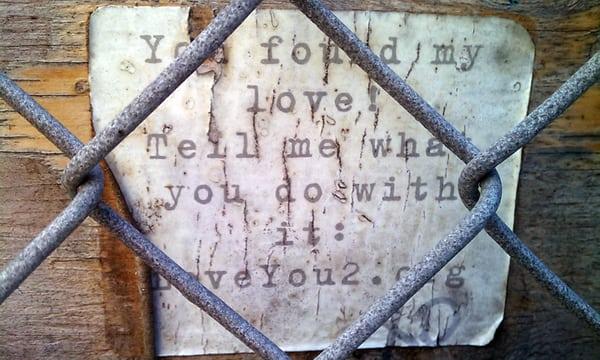 You found my
love!
Tell me what
you do with
it:
LoveYou2.org